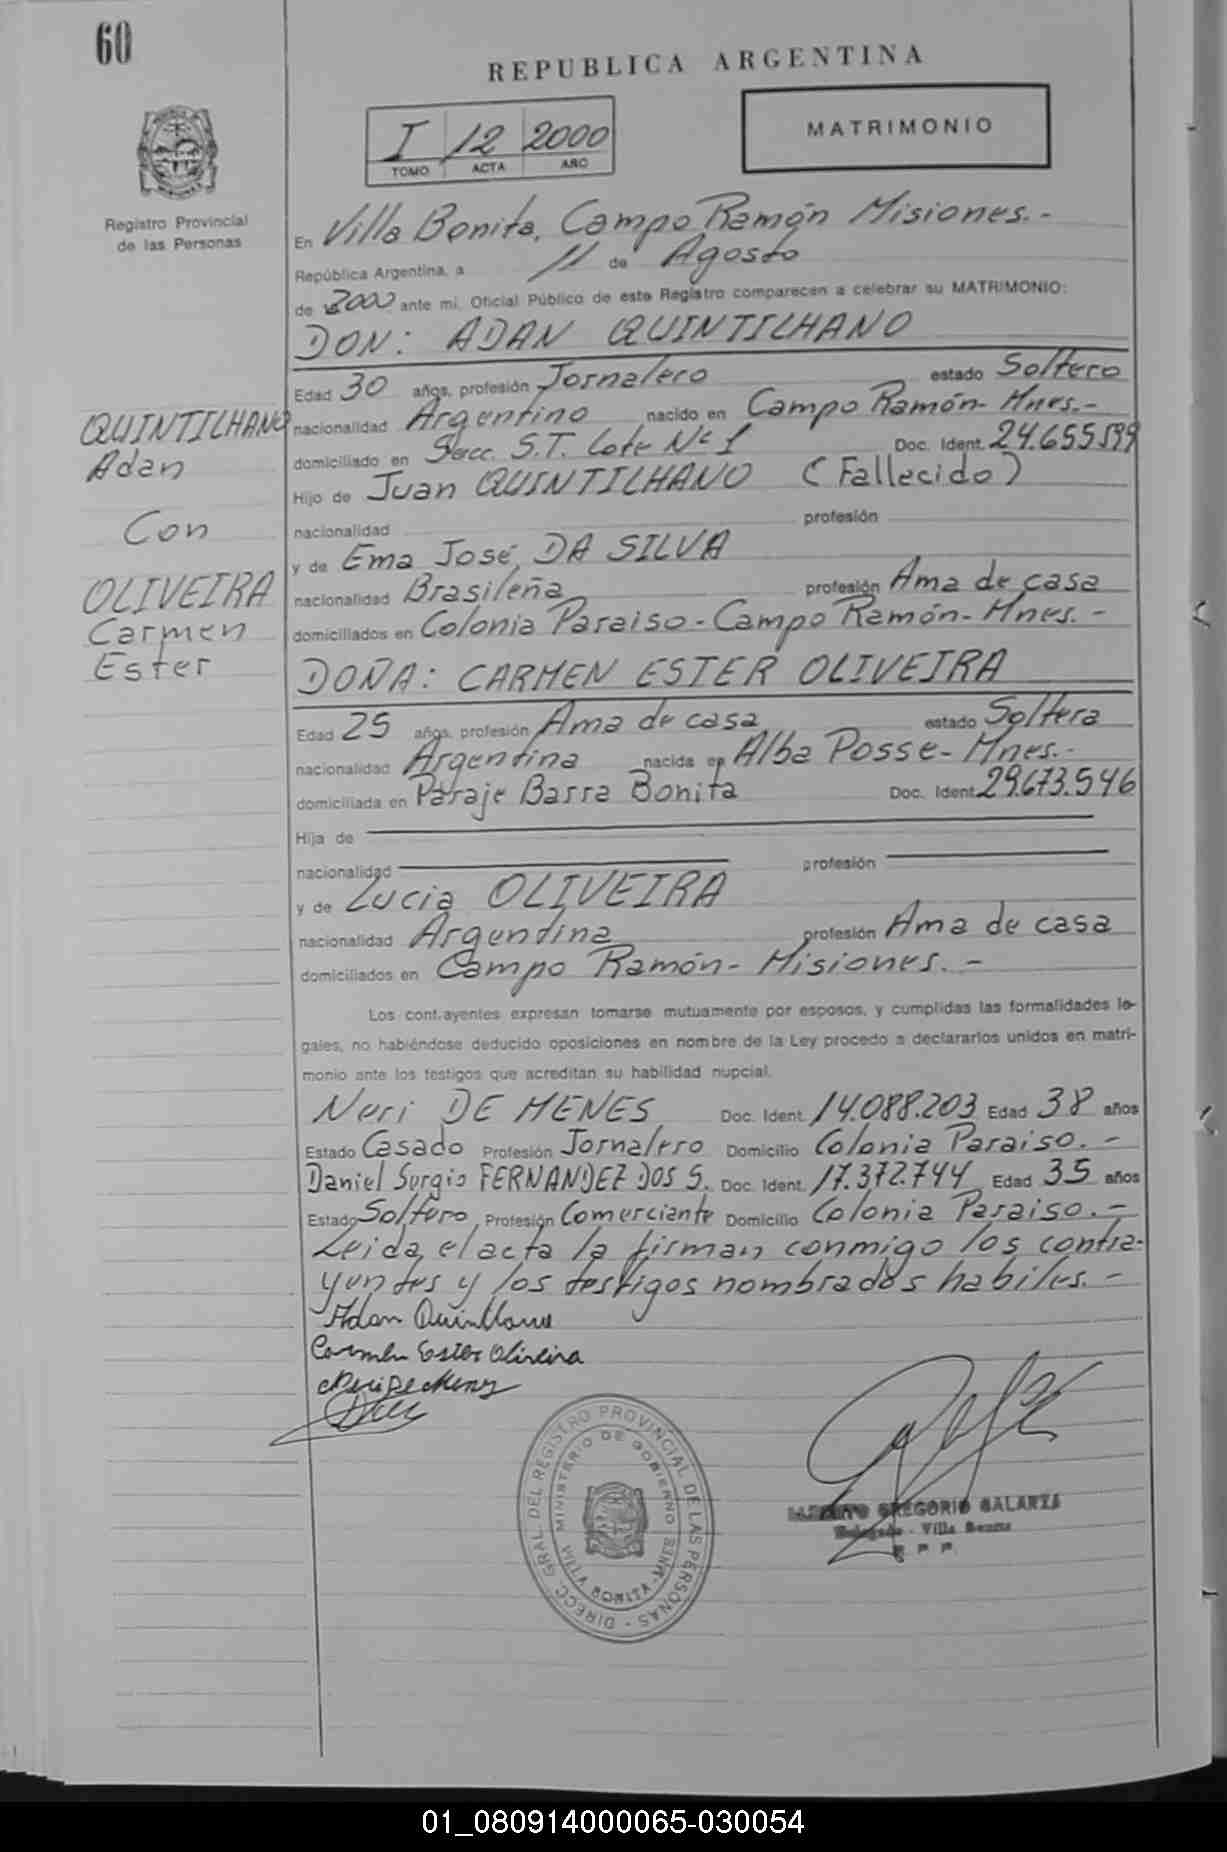 60
REPUBLICA ARGENTINA
I 12 2000
TOMO ACTA AÑO
MATRIMONIO
Registro Provincial
de las Personas
En Villa Bonita, Campo Ramón Misiones.-
República Argentina, a 11 de Agosto
de 2000 ante mi, Oficial Público de este Registro comparecen a celebrar su MATRIMONIO:
DON: ADAN QUINTILHANO
Edad 30 años, profesión Jornalero estado Soltero
nacionalidad Argentino nacido en Campo Ramón- Mnes.-
domiciliado en Secc. S.T. Lote Nº 1 Doc. Ident. 24.655.599
Hijo de Juan QUINTILHANO (Fallecido)
nacionalidad profesión
y de Ema José, DA SILVA
nacionalidad Brasileña profesión Ama de casa
domiciliados en Colonia Paraiso - Campo Ramón- Mnes. -
QUINTILHANO
Adan
Con
OLIVEIRA
Carmen
Ester
DOÑA: CARMEN ESTER OLIVEIRA
Edad 25 años, profesión Ama de casa estado Soltera
nacionalidad Argentina nacida en Alba Posse- Mnes.-
domiciliada en Paraje Barra Bonita Doc. Ident. 29.673.546
Hija de
nacionalidad profesión
y de Lucia OLIVEIRA
nacionalidad Argentina profesión Ama de casa
domiciliados en Campo Ramón- Misiones. -
Los contrayentes expresan tomarse mutuamente por esposos, y cumplidas las formalidades le-
gales, no habiéndose deducido oposiciones en nombre de la Ley procedo a declararlos unidos en matri-
monio ante los testigos que acreditan su habilidad nupcial.
Neri DE MENES Doc. Ident. 14.088.203 Edad 38 años
Estado Casado Profesión Jornalero Domicilio Colonia Paraiso. -
Daniel Sergio FERNANDEZ DOS S. Doc. Ident. 17.372.744 Edad 35 años
Estado Soltero Profesión Comerciante Domicilio Colonia Paraiso. -
Leida el acta la firman conmigo los contra-
yentes y los testigos nombrados habiles. -
Adan Quintilhano
Carmen Ester Oliveira
Neri De Menes
DIRECC. GRAL. DEL REGISTRO PROVINCIAL DE LAS PERSONAS -
MINISTERIO DE GOBIERNO
VILLA BONITA - MNES
GREGORIO GALARZA
Delegado - Villa Bonita
R P P
01_080914000065-030054